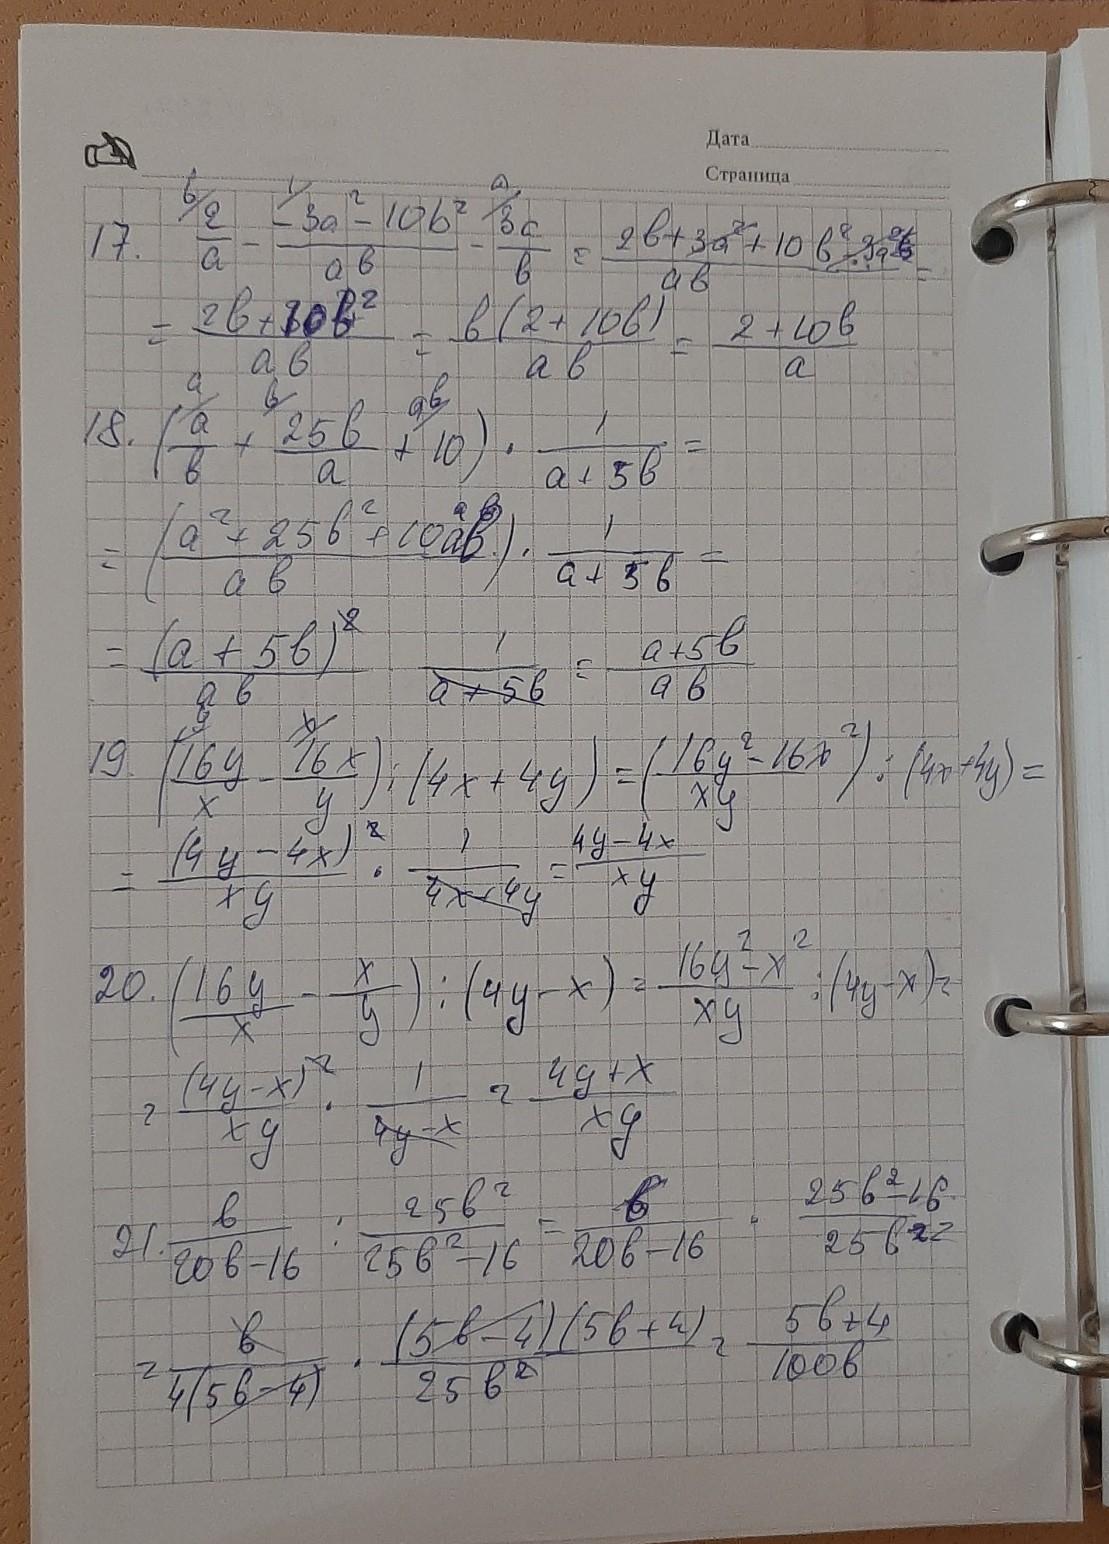 Дата
Страница
17. 2/a - (-3a² - 10b²)/(ab) - 3a/b = (2b + 3a² + 10b² - 3a²)/(ab) =
= (2b + 10b²)/(ab) = b(2 + 10b)/(ab) = (2 + 10b)/a
18. (a/b + 25b/a + 10) · 1/(a + 5b) =
= ((a² + 25b² + 10ab)/(ab)) · 1/(a + 5b) =
= (a + 5b)²/(ab) 1/(a + 5b) = (a + 5b)/(ab)
19. (16y/x - 16x/y) : (4x + 4y) = ((16y² - 16x²)/(xy)) : (4x + 4y) =
= (4y - 4x)²/(xy) · 1/(4x + 4y) = (4y - 4x)/(xy)
20. (16y/x - x/y) : (4y - x) = (16y² - x²)/(xy) : (4y - x) =
= (4y - x)²/(xy) · 1/(4y - x) = (4y + x)/(xy)
21. b/(20b - 16) : 25b²/(25b² - 16) = b/(20b - 16) · (25b² - 16)/(25b²) =
= b/(4(5b - 4)) · (5b - 4)(5b + 4)/(25b²) = (5b + 4)/(100b)